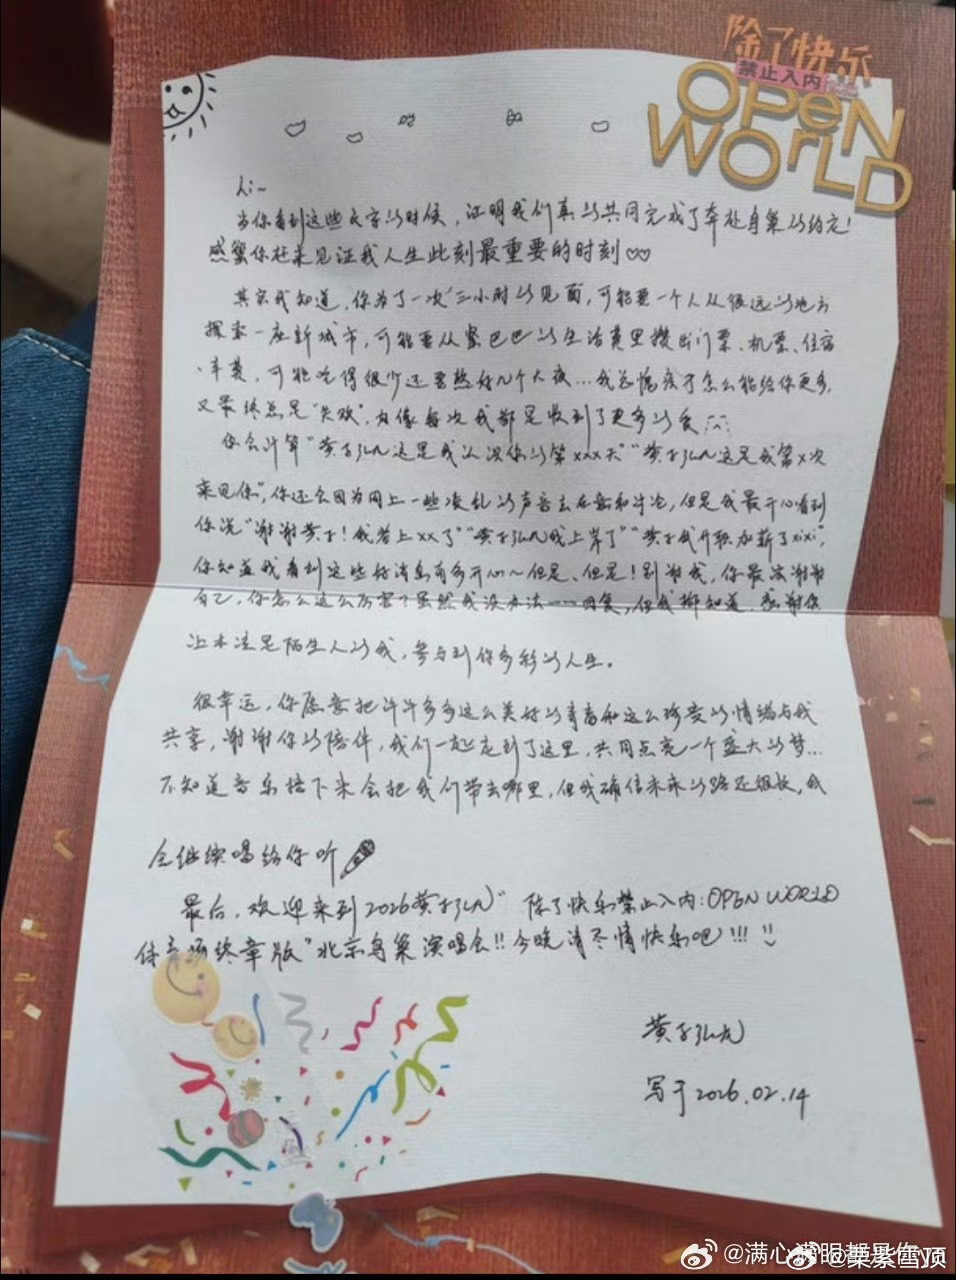 除了快乐
禁止入内
OPEN
WORLD
hi~
当你看到这些文字的时候，证明我们真的共同完成了奔赴鸟巢的约定！
感谢你赶来见证我人生此刻最重要的时刻♡♡
其实我知道，你为了一次三小时的见面，可能要一个人从很远的地方
探索一座新城市，可能要从紧巴巴的生活费里攒出门票、机票、住宿
、车费，可能吃得很少还要熬好几个大夜…我总愧疚才怎么能给你更多，
又最终总是“失败”，好像每次我都是收到了更多的爱
你会计算“黄子弘凡这是我认识你的第xxx天”“黄子弘凡这是我第x次
来见你”，你还会因为网上一些凌乱的声音去在意和讨论，但是我最开心看到
你说“谢谢黄子！我考上xx了”“黄子弘凡我上岸了”“黄子我升职加薪了xixi”，
你知道我看到这些好消息有多开心～但是、但是！别谢我，你最该谢谢
自己，你怎么这么厉害？虽然我没办法一一回复，但我都知道，感谢你
让本该是陌生人的我，参与到你多彩的人生。
很幸运，你愿意把许许多多这么美好的青春和这么珍贵的情绪与我
共享，谢谢你的陪伴，我们一起走到了这里，共同点亮一个盛大的梦…
不知道音乐接下来会把我们带去哪里，但我确信未来的路还很长，我
会继续唱给你听
最后，欢迎来到2026黄子弘凡“除了快乐禁止入内：OPEN WORLD
体育场终章版”北京鸟巢演唱会!! 今晚请尽情快乐吧!!!
黄子弘凡
写于2026.02.14
@满心满眼都是你
@栗紫雪顶